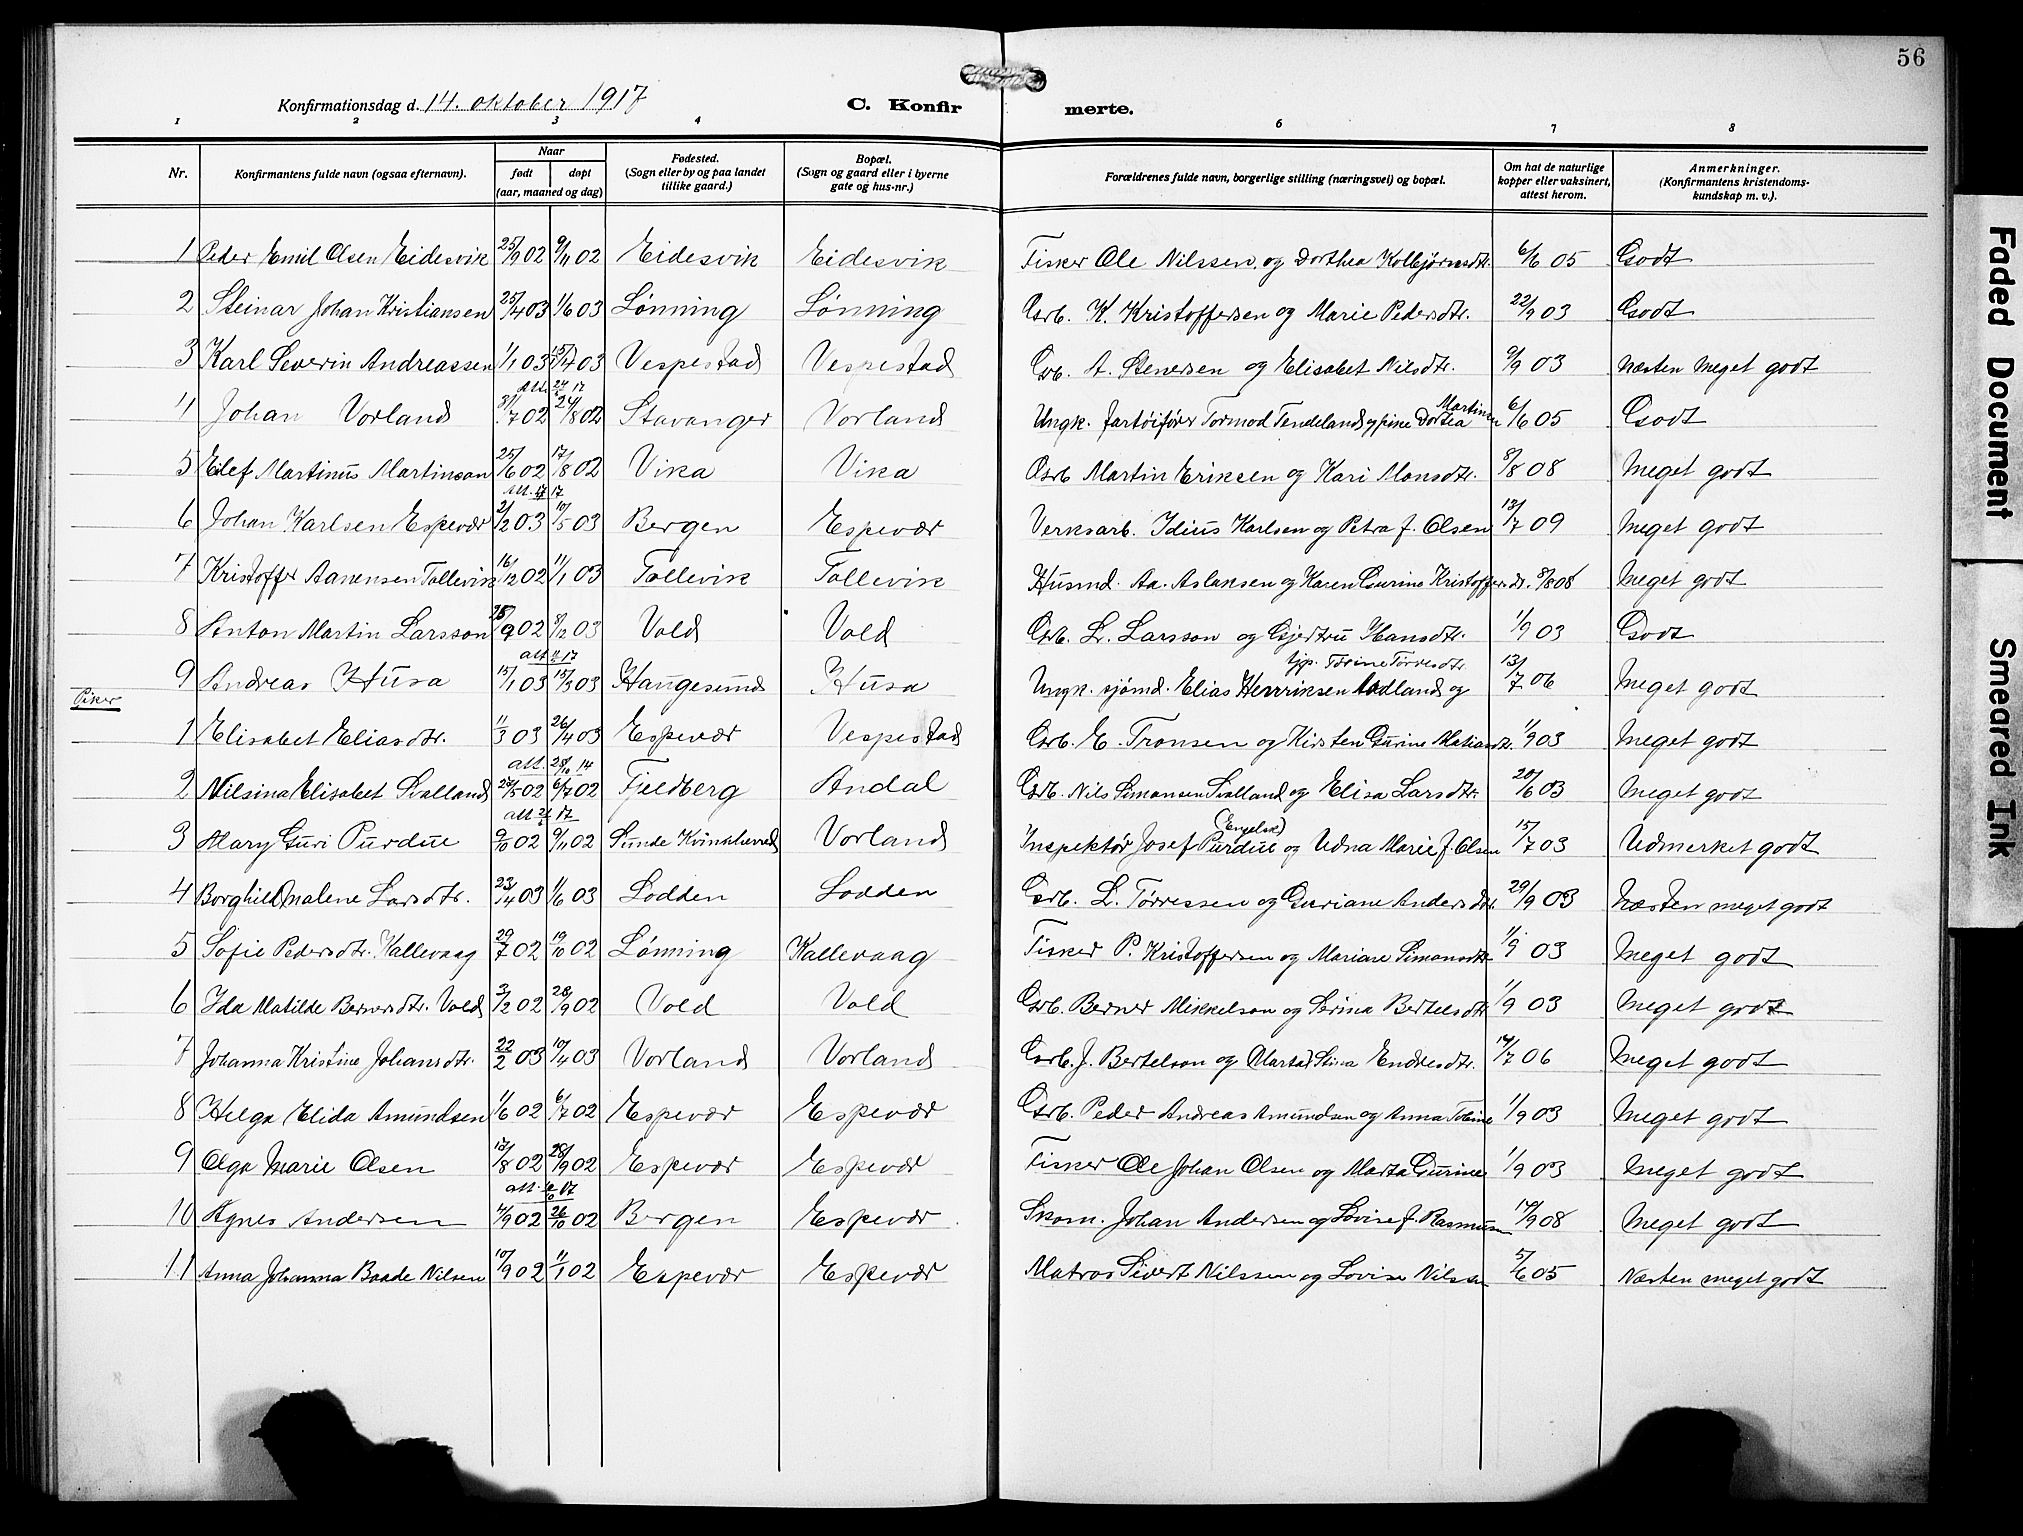 56
Konfirmationsdag d. 14. oktober 1917 C. Konfirmerte.
1 2 3 4 5 6 7 8
Nr. Konfirmantens fulde navn (ogsaa efternavn). Naar født døpt (aar, maaned og dag) Fødested. (Sogn eller by og paa landet tillike gaard.) Bopæl. (Sogn og gaard eller i byerne gate og hus-nr.) Forældrenes fulde navn, borgerlige stilling (næringsvei) og bopæl. Om hat de naturlige kopper eller vaksinert, attest herom. Anmerkninger. (Konfirmantens kristendomskundskap m. v.).
1 Peder Emil Olsen Eidesvik 25/9 02 9/11 02 Eidesvik Eidesvik Fisker Ole Nilssen og Dorthea Kolbjørnsdtr. 6/6 05 Godt
2 Steinar Johan Kristiansen 25/4 03 1/6 03 Lønning Lønning Grb. K. Kristoffersen og Marie Pedersdtr. 22/9 03 Godt
3 Karl Severin Andreassen 1/1 03 15/4 03 Vespestad Vespestad Grb. A. Stenersen og Elisabet Nilsdtr. 9/9 03 Næsten meget godt
4 Johan Vorland 7 02 24/8 02 Stavanger Vorland Ungk. fartøifører Tormod Tendeland og pike Dortea Martinsen 6/6 05 Godt
5 Elef Martinus Martinson 25/6 02 17/8 02 Vika Vika Grb Martin Eriksen og Kari Monsdtr. 8/8 08 Meget godt
6 Johan Karlsen Espevær 2/12 03 10/5 03 Bergen Espevær Verksarb. Idius Karlsen og Petra J. Olsen 13/7 09 Meget godt
7 Kristoffer Aanensen Tollevik 16/12 02 11/1 03 Tollevik Tollevik Husmd. Aa. Aslaksen og Karen Gurine Kristoffersdr. 8/8 08 Meget godt
8 Anton Martin Larsson 28/9 02 8/12 03 Vold Vold Grb. L. Larsson og Gjertru Hansdtr. 1/9 03 Godt
9 Andreas Husa 15/1 03 15/3 03 Haugesund Husa Ungk. sjømd. Elias Henriksen og tjp. Torine Torresdtr. 13/7 06 Meget godt
Piker
1 Elisabet Eliasdtr. 11/3 03 26/4 03 Espevær Vespestad Grb. E. Tronsen og Kirsten Gurine Matiasdtr. 1/9 03 Meget godt
2 Nilsina Elisabet Svalland 5 02 6/7 02 Fjeldberg Andal Grb. Nils Simonsen Svalland og Elisa Larsdtr. 20/6 03 Meget godt
3 Mary Guri Purdue 9/10 02 9/11 02 Sunde Kvinnherred Vorland Inspektør Josef Purdue (Engelsk) og Edna Marie J. Olsen 15/7 03 Udmerket godt
4 Borghild Malene Larsdtr. 23/4 03 1/6 03 Lodden Lodden Grb. L. Tørressen og Guriane Andersdtr. 29/9 03 Næsten meget godt
5 Sofie Pedersdtr. Kallevaag 29/7 02 19/10 02 Lønning Kallevaag Fisker P. Kristoffersen og Mariane Simonsdtr. 1/9 03 Meget godt
6 Ida Matilde Bernersdtr. Vold 3/12 02 28/9 02 Vold Vold Grb. Berner Mikkelson og Serina Bertelsdtr. 1/9 03 Meget godt
7 Johanna Kristine Johansdtr. 22/2 03 10/4 03 Vorland Vorland Grb. J. Bertelson og Marta Stina Endresdtr. 14/7 06 Meget godt
8 Helga Elida Amundsen 1/6 02 6/7 02 Espevær Espevær Grb. Peder Andreas Amundsen og Anna Tobine 1/9 03 Meget godt
9 Olga Marie Olsen 17/8 02 28/9 02 Espevær Espevær Fisker Ole Johan Olsen og Marta Gurine 1/9 03 Meget godt
10 Agnes Andersen 4/9 02 26/10 02 Bergen Espevær Skom. Johan Andersen og Lovise J. Rasmussen 17/9 08 Meget godt
11 Anna Johanna Baade Nilsen 10/9 02 11/1 02 Espevær Espevær Matros Sivert Nilssen og Lovise Nilssen 5/6 05 Næsten meget godt
Faded Document
Smeared Ink